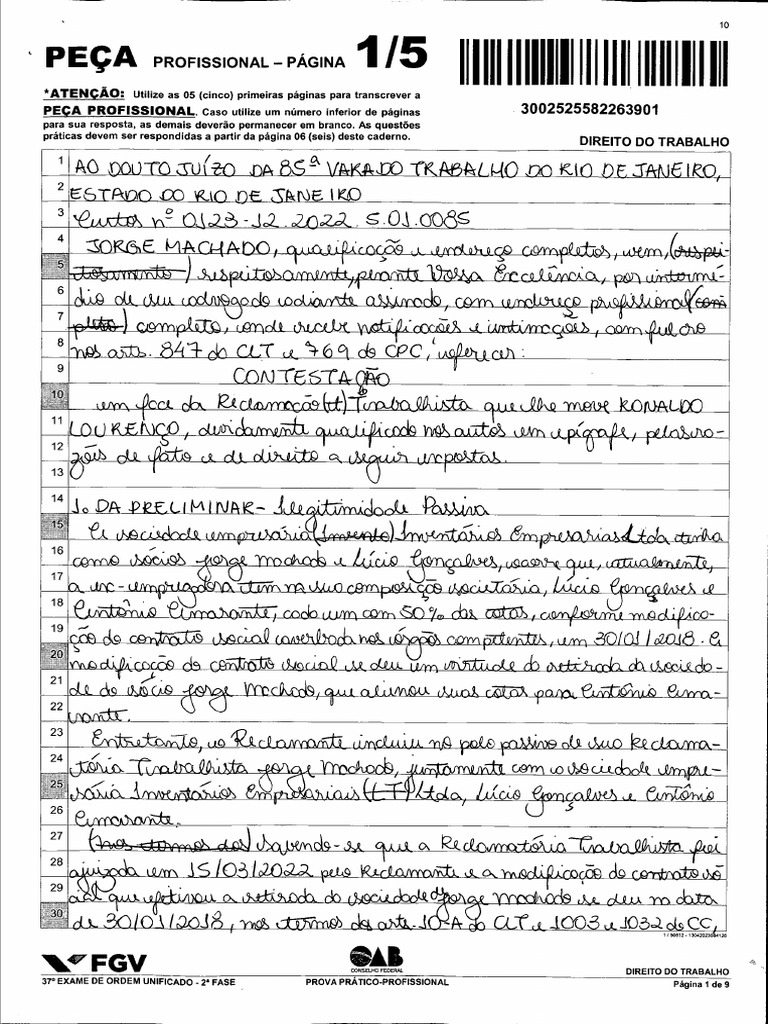 10
PEÇA PROFISSIONAL – PÁGINA 1/5
*ATENÇÃO: Utilize as 05 (cinco) primeiras páginas para transcrever a
PEÇA PROFISSIONAL. Caso utilize um número inferior de páginas
para sua resposta, as demais deverão permanecer em branco. As questões
práticas devem ser respondidas a partir da página 06 (seis) deste caderno.
3002525582263901
DIREITO DO TRABALHO
1 AO DOUTO JUÍZO DA 85ª VARA DO TRABALHO DO RIO DE JANEIRO,
2 ESTADO DO RIO DE JANEIRO
3 Autos nº 0123-12.2022.5.01.0085
4 JORGE MACHADO, qualificação e endereço completos, vem, (respei-
5 tosamente) respeitosamente, perante Vossa Excelência, por intermé-
6 dio de seu advogado adiante assinado, com endereço profissional (com
7 pleto) completo, onde recebe notificações e intimações, com fulcro
8 nos arts. 847 da CLT e 769 do CPC, oferecer:
9 CONTESTAÇÃO
10 em face da Reclamação (tt) Trabalhista que lhe move RONALDO
11 LOURENÇO, devidamente qualificado nos autos em epígrafe, pelas ra-
12 zões de fato e de direito a seguir expostas.
13
14 1. DA PRELIMINAR - Ilegitimidade Passiva
15 A sociedade empresária (Invento) Inventários Empresarias Ltda tinha
16 como sócios Jorge Machado e Lúcio Gonçalves, ocorre que, atualmente,
17 a ex-empregadora tem na sua composição societária, Lúcio Gonçalves e
18 Antônio Amarante, cada um com 50% das cotas, conforme modifica-
19 ção do contrato social averbada nos órgãos competentes, em 30/01/2018. A
20 modificação do contrato social se deu em virtude da retirada da socieda-
21 de do sócio Jorge Machado, que alienou suas cotas para Antônio Ama-
22 rante.
23 Entretanto, o Reclamante incluiu no polo passivo de sua Reclama-
24 tória Trabalhista Jorge Machado, juntamente com a sociedade empre-
25 sária Inventários Empresariais (LT) Ltda, Lúcio Gonçalves e Antônio
26 Amarante.
27 (Nos termos dos) Sabendo-se que a Reclamatória Trabalhista foi
28 ajuizada em 15/03/2022 pelo Reclamante e a modificação do contrato so
29 cial que efetivou a retirada da sociedade de Jorge Machado se deu na data
30 de 30/01/2018, nos termos dos arts. 10-A da CLT e 1003 e 1032 do CC,
FGV
OAB
CONSELHO FEDERAL
DIREITO DO TRABALHO
37º EXAME DE ORDEM UNIFICADO - 2ª FASE
PROVA PRÁTICO-PROFISSIONAL
Página 1 de 9